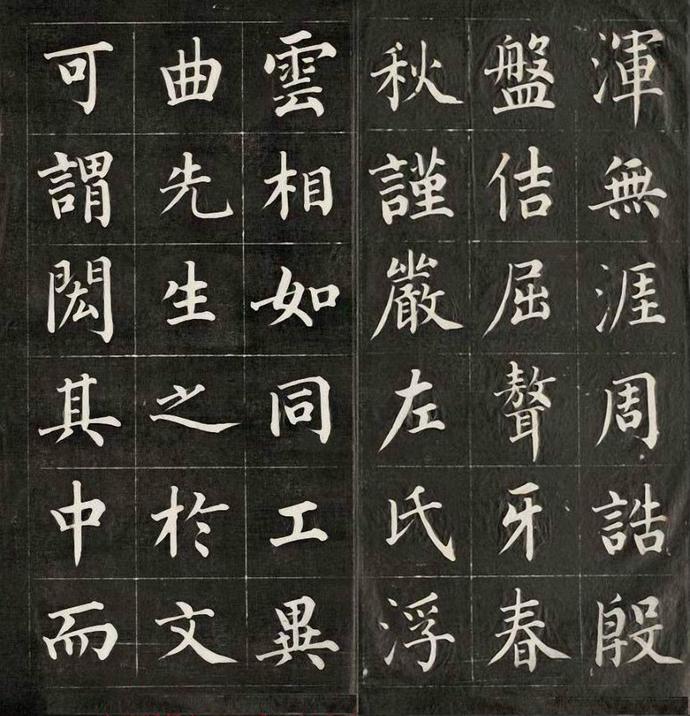 渾無涯周誥殷
盤佶屈聱牙春
秋謹嚴左氏浮
雲相如同工異
曲先生之於文
可謂閎其中而